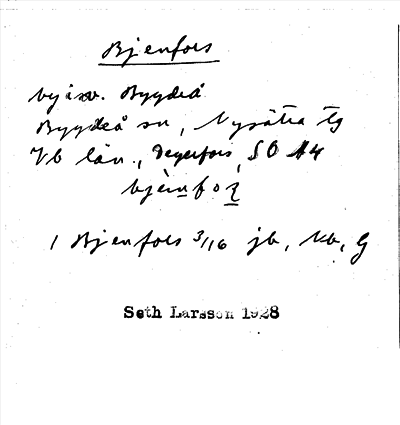 Bjenfors
by i sv. Bygdeå
Bygdeå sn, Nysätra tg
Vb län., Degerfors, SO
bjènfoʀ̲
1 Bjenfors 3/16 jb, kb, G
Seth Larsson 1928